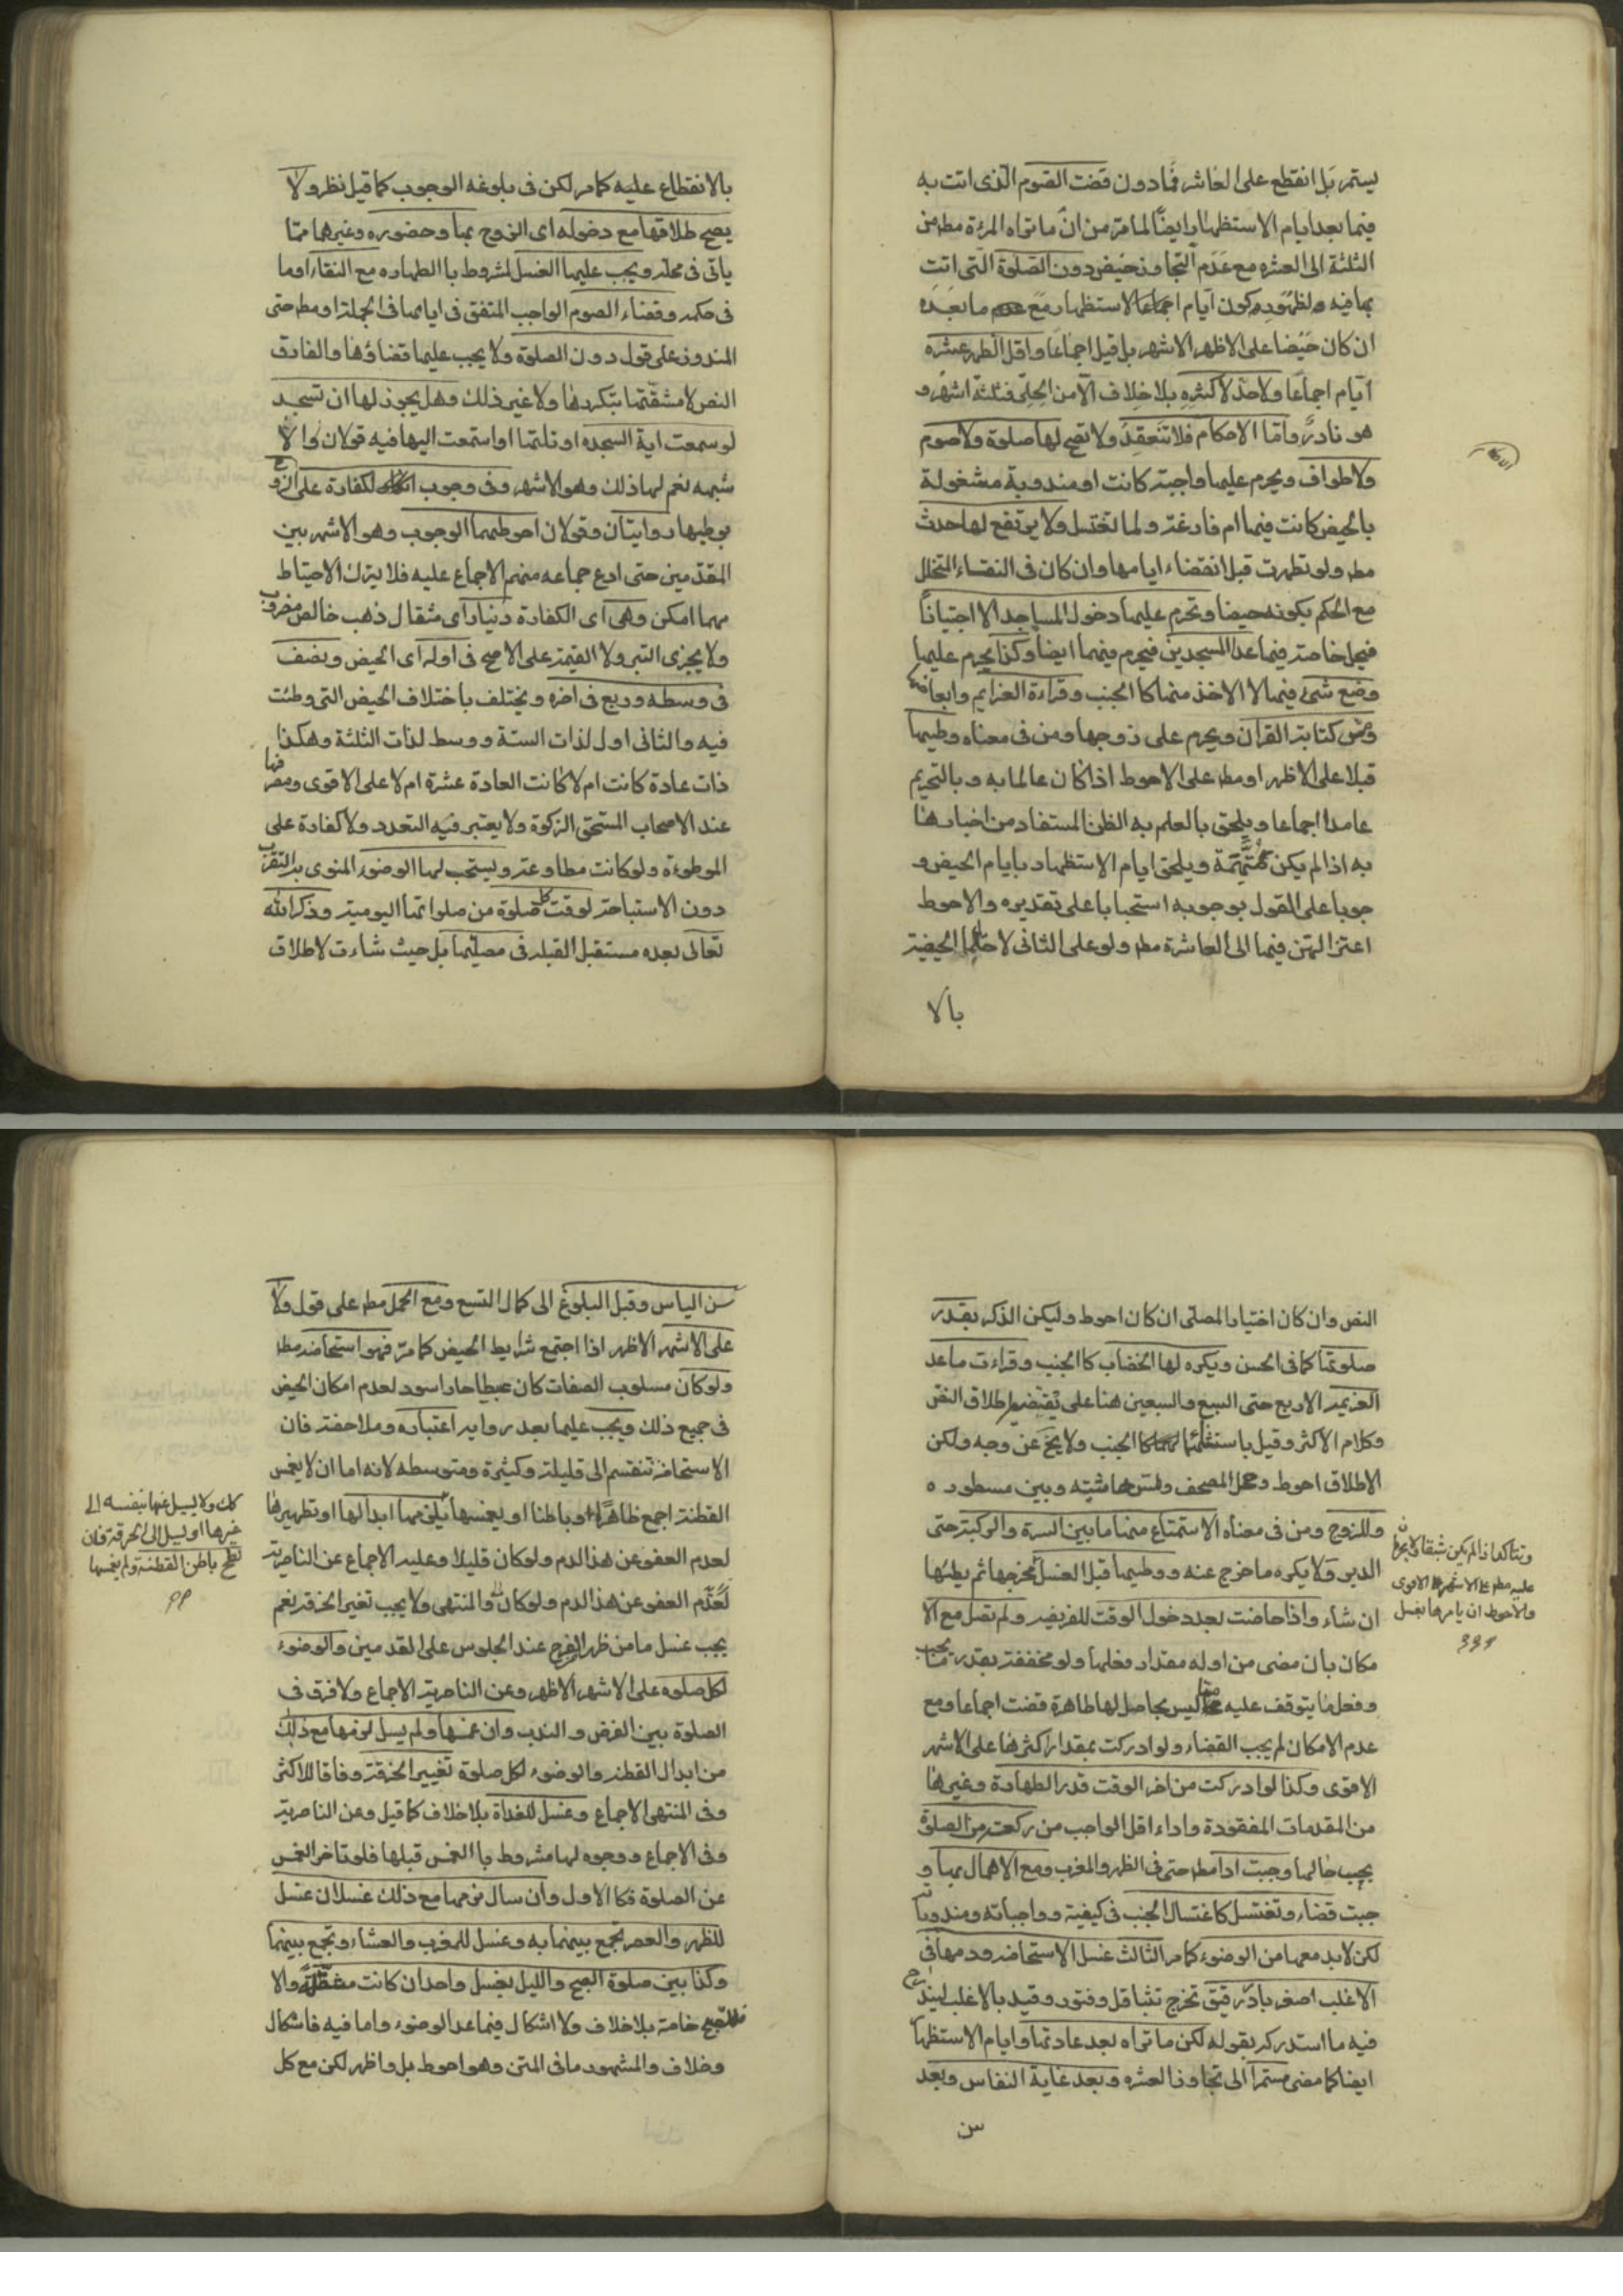 يستمر بل انقطع على العاشر فما دون قضت الصوم الذى اتت به
فيما بعد ايام الاستظهار ايضًا لما مرّ من انّ ما تراه المرءة مطم من
الثلثة الى العشره مع عَدَم التجاوز حَيض دون الصّلوة التى اتت
بها فيه و لظهوره كون ايّام الاستظهار مَعَ ما بَعدَه
ان كان حَيْضًا على الاظهر الاشهر بل قيل اجماعًا و اقل الطهر عشره
ايّام اجماعًا ولاحدّ لاكثرِهِ بلا خِلاف الّا من الحِلِى فثلثة اشهر و
هو نادرٌ و امّا الاحكام فلا تنَعقِدُ ولا تصح لها صلوة ولا صوم
ولا طواف و يحرم عليها واجبة كانت او مندوبة مشغولة
بالحيض كانت فيها ام فارغة و لما تغتسل ولا يرتفع لها حدث
مطم ولو تطهرت قبل انقضاء ايامها وان كان فى النقاء المتخلل
مع الحكم بكونه حيضا و تحرم عليها دخول المساجد الا اجتيازًا
فيحل خاصة فيما عدا المسجدين فيحرم فيهما ايضا و كذا يحرم عليها
وضع شئ فيها لا الاخذ منها كا الجنب و قراءة العزايم و ابعاضها
و مسّ كتابة القرآن و يحرم على زوجها و من فى معناه وطيها
قبلا على الاظهر او مطم على الاحوط اذا كان عالما به و بالتحريم
عامدا اجماعا و يلحق بالعلم به الظن المستفاد من اخبارها
به اذا لم يكن متهمة و يلحق ايام الاستظهار بايام الحيض و
جوبا على القول بوجوبه استحبابا على تقديره والاحوط
اعتزالهن فيها الى العاشرة مطم ولو على الثانى لاحتمال الحيضية
بالا
بالانقطاع عليه كما مر لكن فى بلوغه الوجوب كما قيل نظر ولا
يصح طلاقها مع دخوله اى الزوج بها و حضوره و غيرهما ممّا
ياتى فى محله و يجب عليها الغسل لمشروط با الطهاره مع النقاء او ما
فى حكمه و قضاء الصوم الواجب المتفق فى ايامها فى الجملة او مطم حتى
المنذور على قول دون الصلوة ولا يجب عليها قضاؤها و الفارق
النص لا مشقّتها بتكررها ولا غير ذلك و هل يجوز لها ان تسجد
لو سمعت اية السجده او تلتها او استمعت اليها فيه قولان والا
شبهه نعم لها ذلك و هو الاشهر و فى وجوب الكفارة على الزوج
بوطيها روايتان و قولان احوطهما الوجوب و هو الاشهر بين
المقدّمين حتى ادع جماعه منهم الاجماع عليه فلا يترك الاحتياط
مهما امكن و هى اى الكفارة دينار اى مثقال ذهب خالص مضروب
ولا يجزى التبر ولا القيمة على الاصح فى اوله اى الحيض و نصف
فى وسطه و ربع فى اخره و يختلف باختلاف الحيض التى وطئت
فيه والثانى اول لذات الستة و وسط لذات الثلثة و هكذا
ذات عادة كانت ام لا كانت العادة عشرة ام لا على الاقوى و مصرفها
عند الاصحاب المستحق الزكوة ولا يعتبر فيه التعدد ولا كفارة على
الموطوءة ولو كانت مطاوعة و يستحب لها الوضوء المنوى به التقرب
دون الاستباحة لوقت كل صلوة من صلواتها اليومية و ذكر الله
تعالى بعده مستقبل القبله فى مصليها بل حيث شاءت لاطلاق
النص وان كان اختيار المصلى ان كان احوط وليكن الذكر بقدر
صلوتها كما فى الحسن و يكره لها الخضاب كا الجنب و قراءت ما عد
العزيمة الاربع حتى السبع والسبعين هنا على اطلاق النص
و كلام الاكثر و قيل كا الجنب ولا يخ عن وجه ولكن
الاطلاق احوط و حمل المصحف و لمس هاشيته و بين مسطوره
و للزوج و من فى معناه الاستمتاع منها ما بين السرة والركبة حتى
الدبر ولا يكره ما خرج عنه و وطيها قبل الغسل ثم يطئها
ان شاء و اذا حاضت بعد دخول الوقت للفريضه و لم تصل مع الا
مكان بان مضى من اوله مقدار فعلها ولو مخففة بقدر ما يجب
و فعل ما يتوقف عليه مما ليس بحاصل لها طاهرة قضت اجماعا و مع
عدم الامكان لم يجب القضاء ولو ادركت بمقدار اكثرها على الاشهر
الاقوى و كذا لو ادركت من اخر الوقت قدر الطهارة و غيرها
من المقدمات المفقودة و اداء اقل الواجب من ركعة من الصلوة
يجب حالها و جبت ادا مطم حتى فى الظهر و المغرب و مع الاهمال بها و
جبت قضاء و تغتسل كاغتسال الجنب فى كيفية و واجباته و مندوباته
لكن لابد معها من الوضوء كما مر الثالث غسل الاستحاضه و دمها فى
الاغلب اصفر بارد رقيق تخرج بتثاقل و فتور و قيد بالاغلب ليندرج
فيه ما استدركه بقوله لكن ما تراه بعد عادتها و ايام الاستظهار
ايضا كما مضى مستمرا الى تجاوز العشره و بعد غاية النفاس و بعد
سن
و تتاكد اذا لم يكن شبقا ولا يحرم
عليه مطم على الاشهر الاقوى
والاحوط ان يامرها بغسل
سن الياس و قبل البلوغ الى كمال التسع و مع الحمل مطم على قول ولا
على الاشهر الاظهر اذا اجتمع شرايط الحيض كما مرّ فهو استحاضه مطم
ولو كان مسلوب الصفات كان عبيطا حارا اسود لعدم امكان الحيض
فى جميع ذلك و يجب عليها بعد اعتباره و ملاحظته فان
الاستحاضة تنقسم الى قليلة و كثيرة و متوسطه لانه اما ان لا يغمس
القطنة اجمع ظاهرًا و باطنا او يغمسها يلزمها ابدالها او تطهيرها
لعدم العفو عن هذ الدم ولو كان قليلا و عليه الاجماع عن الناصرية
لعدم العفو عن هذ الدم ولو كان والمنتهى ولا يجب تغير الخرقه نعم
يجب غسل ما من ظهر الفرج عند الجلوس على القدمين والوضوء
لكل صلوه على الاشهر الاظهر و عن الناصرية الاجماع ولا فرق فى
الصلوة بين الفرض و الندب وان غمسها و لم يسل لزمها مع ذلك
من ابدال القطنه والوضوء لكل صلوة تغيير الخرقة وفاقا للاكثر
و فى المنتهى الاجماع و غسل للغداة بلا خلاف كما قيل و عن الناصرية
و فى الاجماع و وجوه لها مشروط با الغمس قبلها فلو تاخر الغمس
عن الصلوة فكا الاول وان سال لزمها مع ذلك غسلان غسل
للظهر و العصر تجمع بينهما به و غسل للمغرب و العشاء و تجمع بينهما
و كذا بين صلوة الصبح و الليل بغسل واحد ان كانت متنفلة والا
فللصبح خاصة بلا خلاف ولا اشكال فيما عدا الوضوء و اما فيه فاشكال
و خلاف والمشهور ما فى المتن و هو احوط بل و اظهر لكن مع كل
كك ولا يسيل عنها بنفسه الى
غيرها او يسيل الى الخرقة فان
لطخ باطن القطنة و لم يغمسها